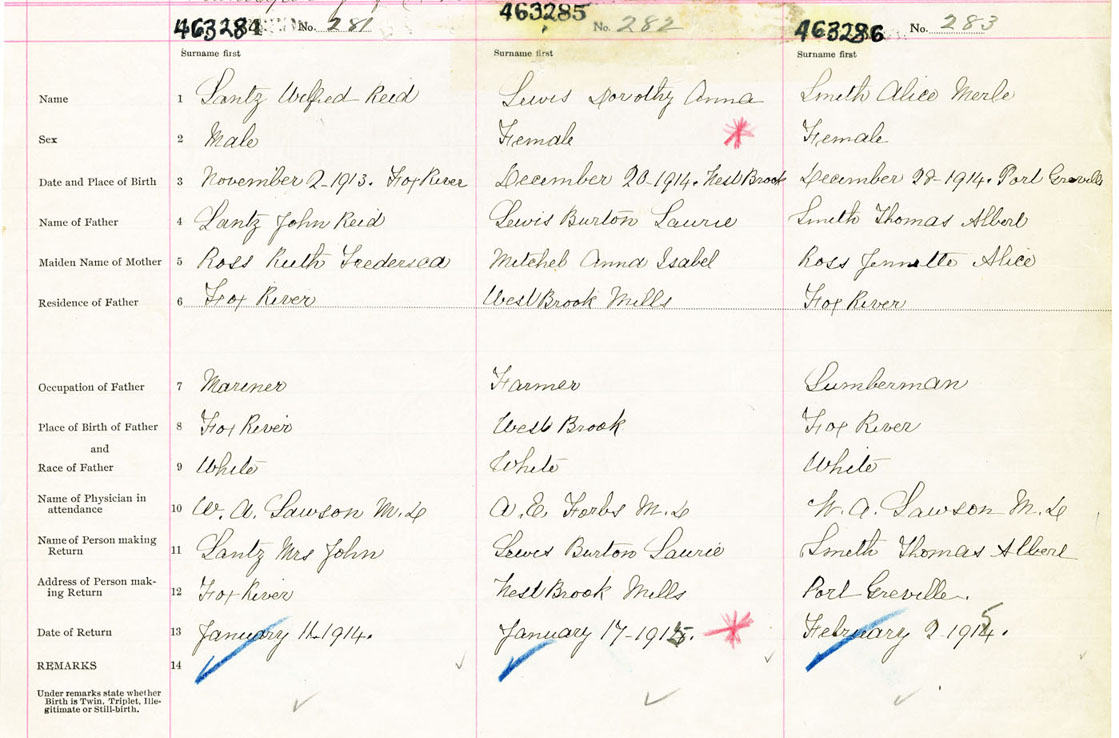 463284 No. 281 463285 No. 282 463286 No. 283
Surname first Surname first Surname first
Name 1 Lantz Wilfred Reid Lewis Dorothy Anna Smith Alice Merle
Sex 2 Male Female Female
Date and Place of Birth 3 November 2-1913. Fox River December 20-1914. West Brook December 28-1914. Port Greville
Name of Father 4 Lantz John Reid Lewis Burton Laurie Smith Thomas Albert
Maiden Name of Mother 5 Ross Ruth Fredersca Mitchel Anna Isabel Ross Jennette Alice
Residence of Father 6 Fox River West Brook Mills Fox River
Occupation of Father 7 Mariner Farmer Lumberman
Place of Birth of Father 8 Fox River West Brook Fox River
and
Race of Father 9 White White White
Name of Physician in
attendance 10 W. A. Lawson M.D A. E. Forbs M.D W. A. Lawson M.D
Name of Person making
Return 11 Lantz Mrs John Lewis Burton Laurie Smith Thomas Albert
Address of Person mak-
ing Return 12 Fox River West Brook Mills Port Greville.
Date of Return 13 January 11-1914. January 17-1915. February 2-1915.
REMARKS 14
Under remarks state whether
Birth is Twin, Triplet, Ille-
gitimate or Still-birth.